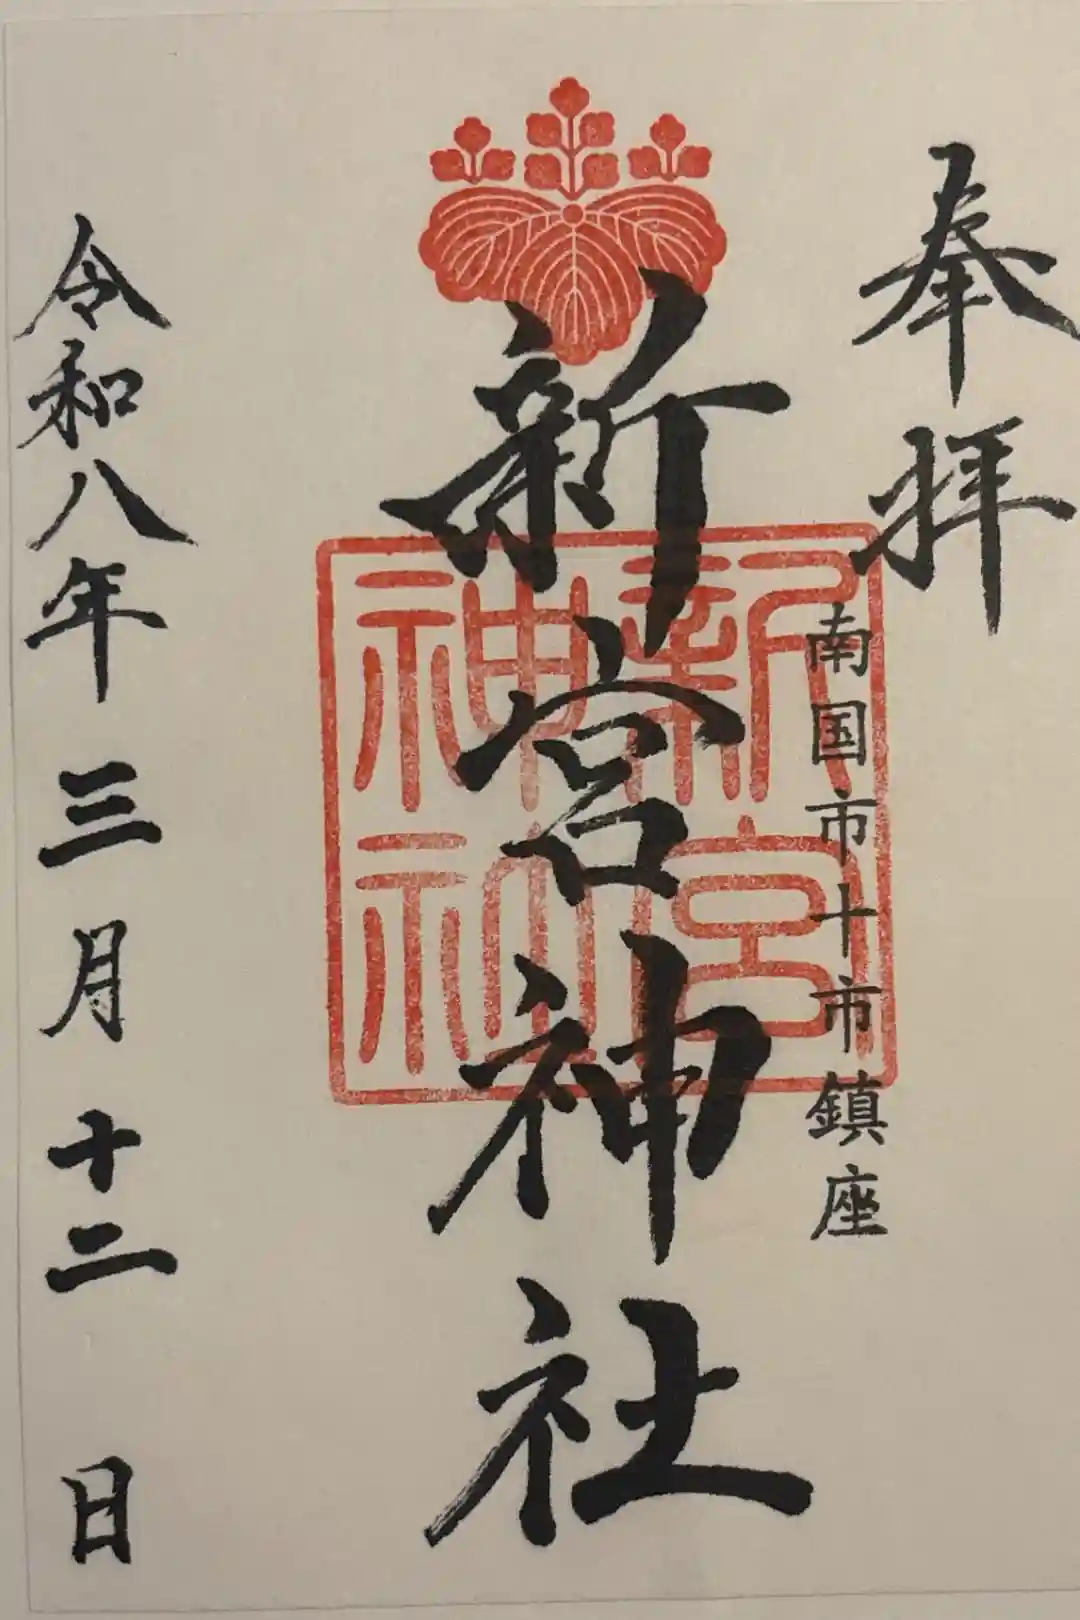 奉拝
南国市十市鎮座
新宮神社
新宮
神社
令和八年三月十二日